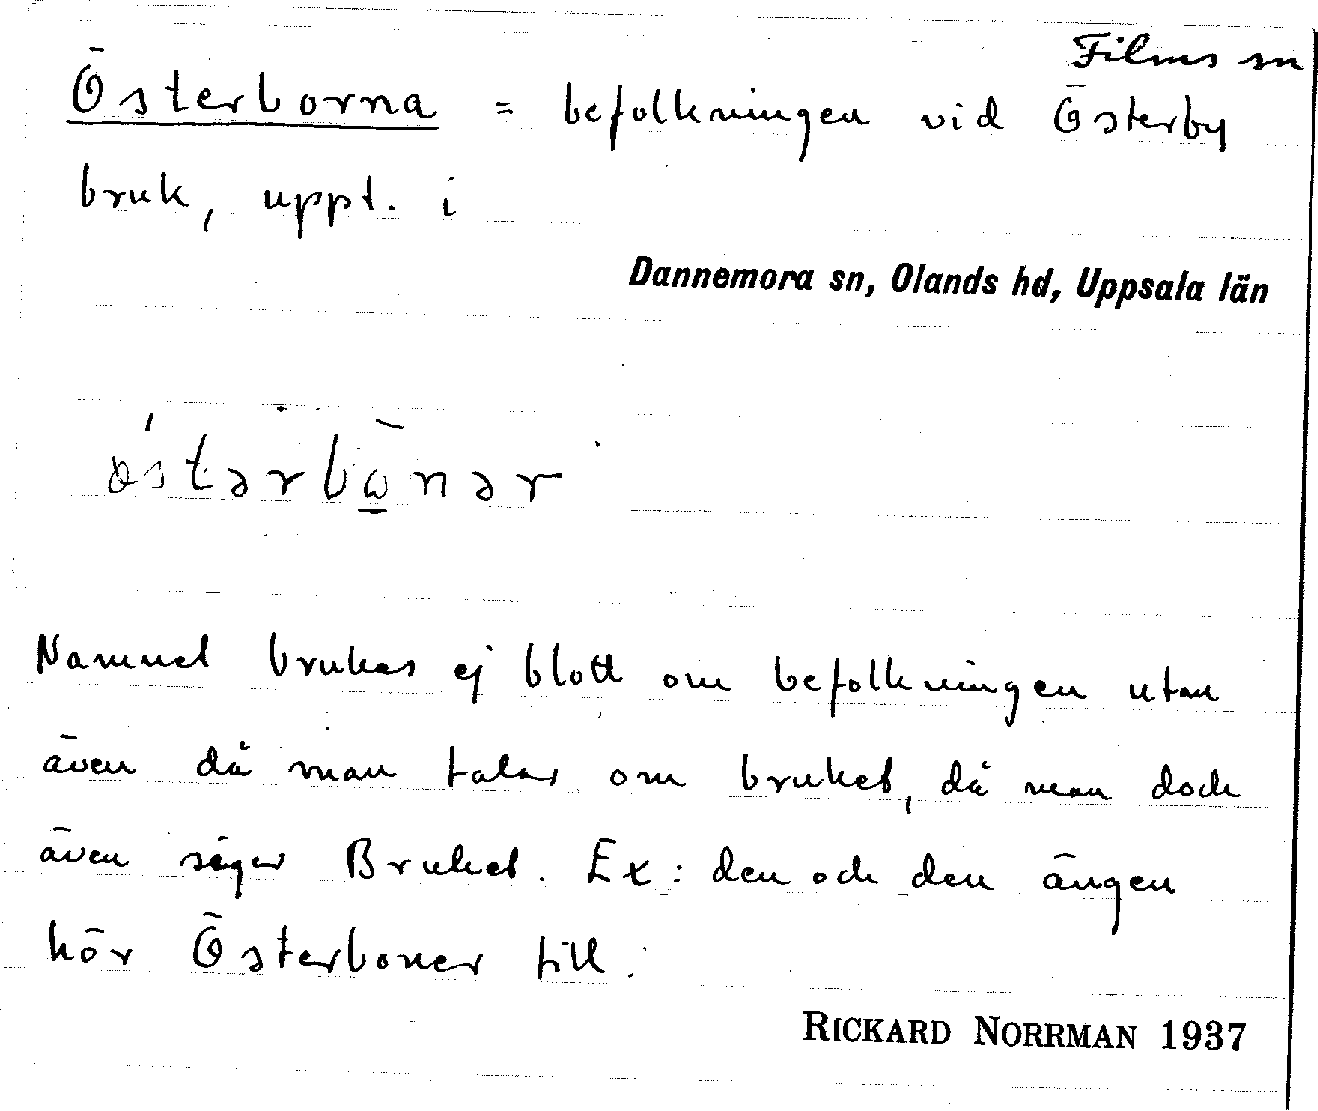 Films sn
Österborna = befolkningen vid Österby
bruk, uppt. i
Dannemora sn, Olands hd, Uppsala län
Namnet brukas ej blott om befolkningen utan
även då man talar om bruket, då man dock
även säger Bruket. Ex: den och den ängen
hör Österboner till.
RICKARD NORRMAN 1937